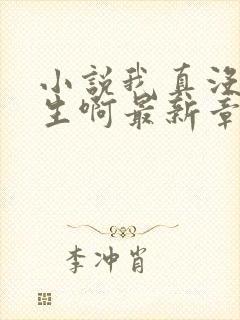 小説我真没
生啊最新章
李冲肖